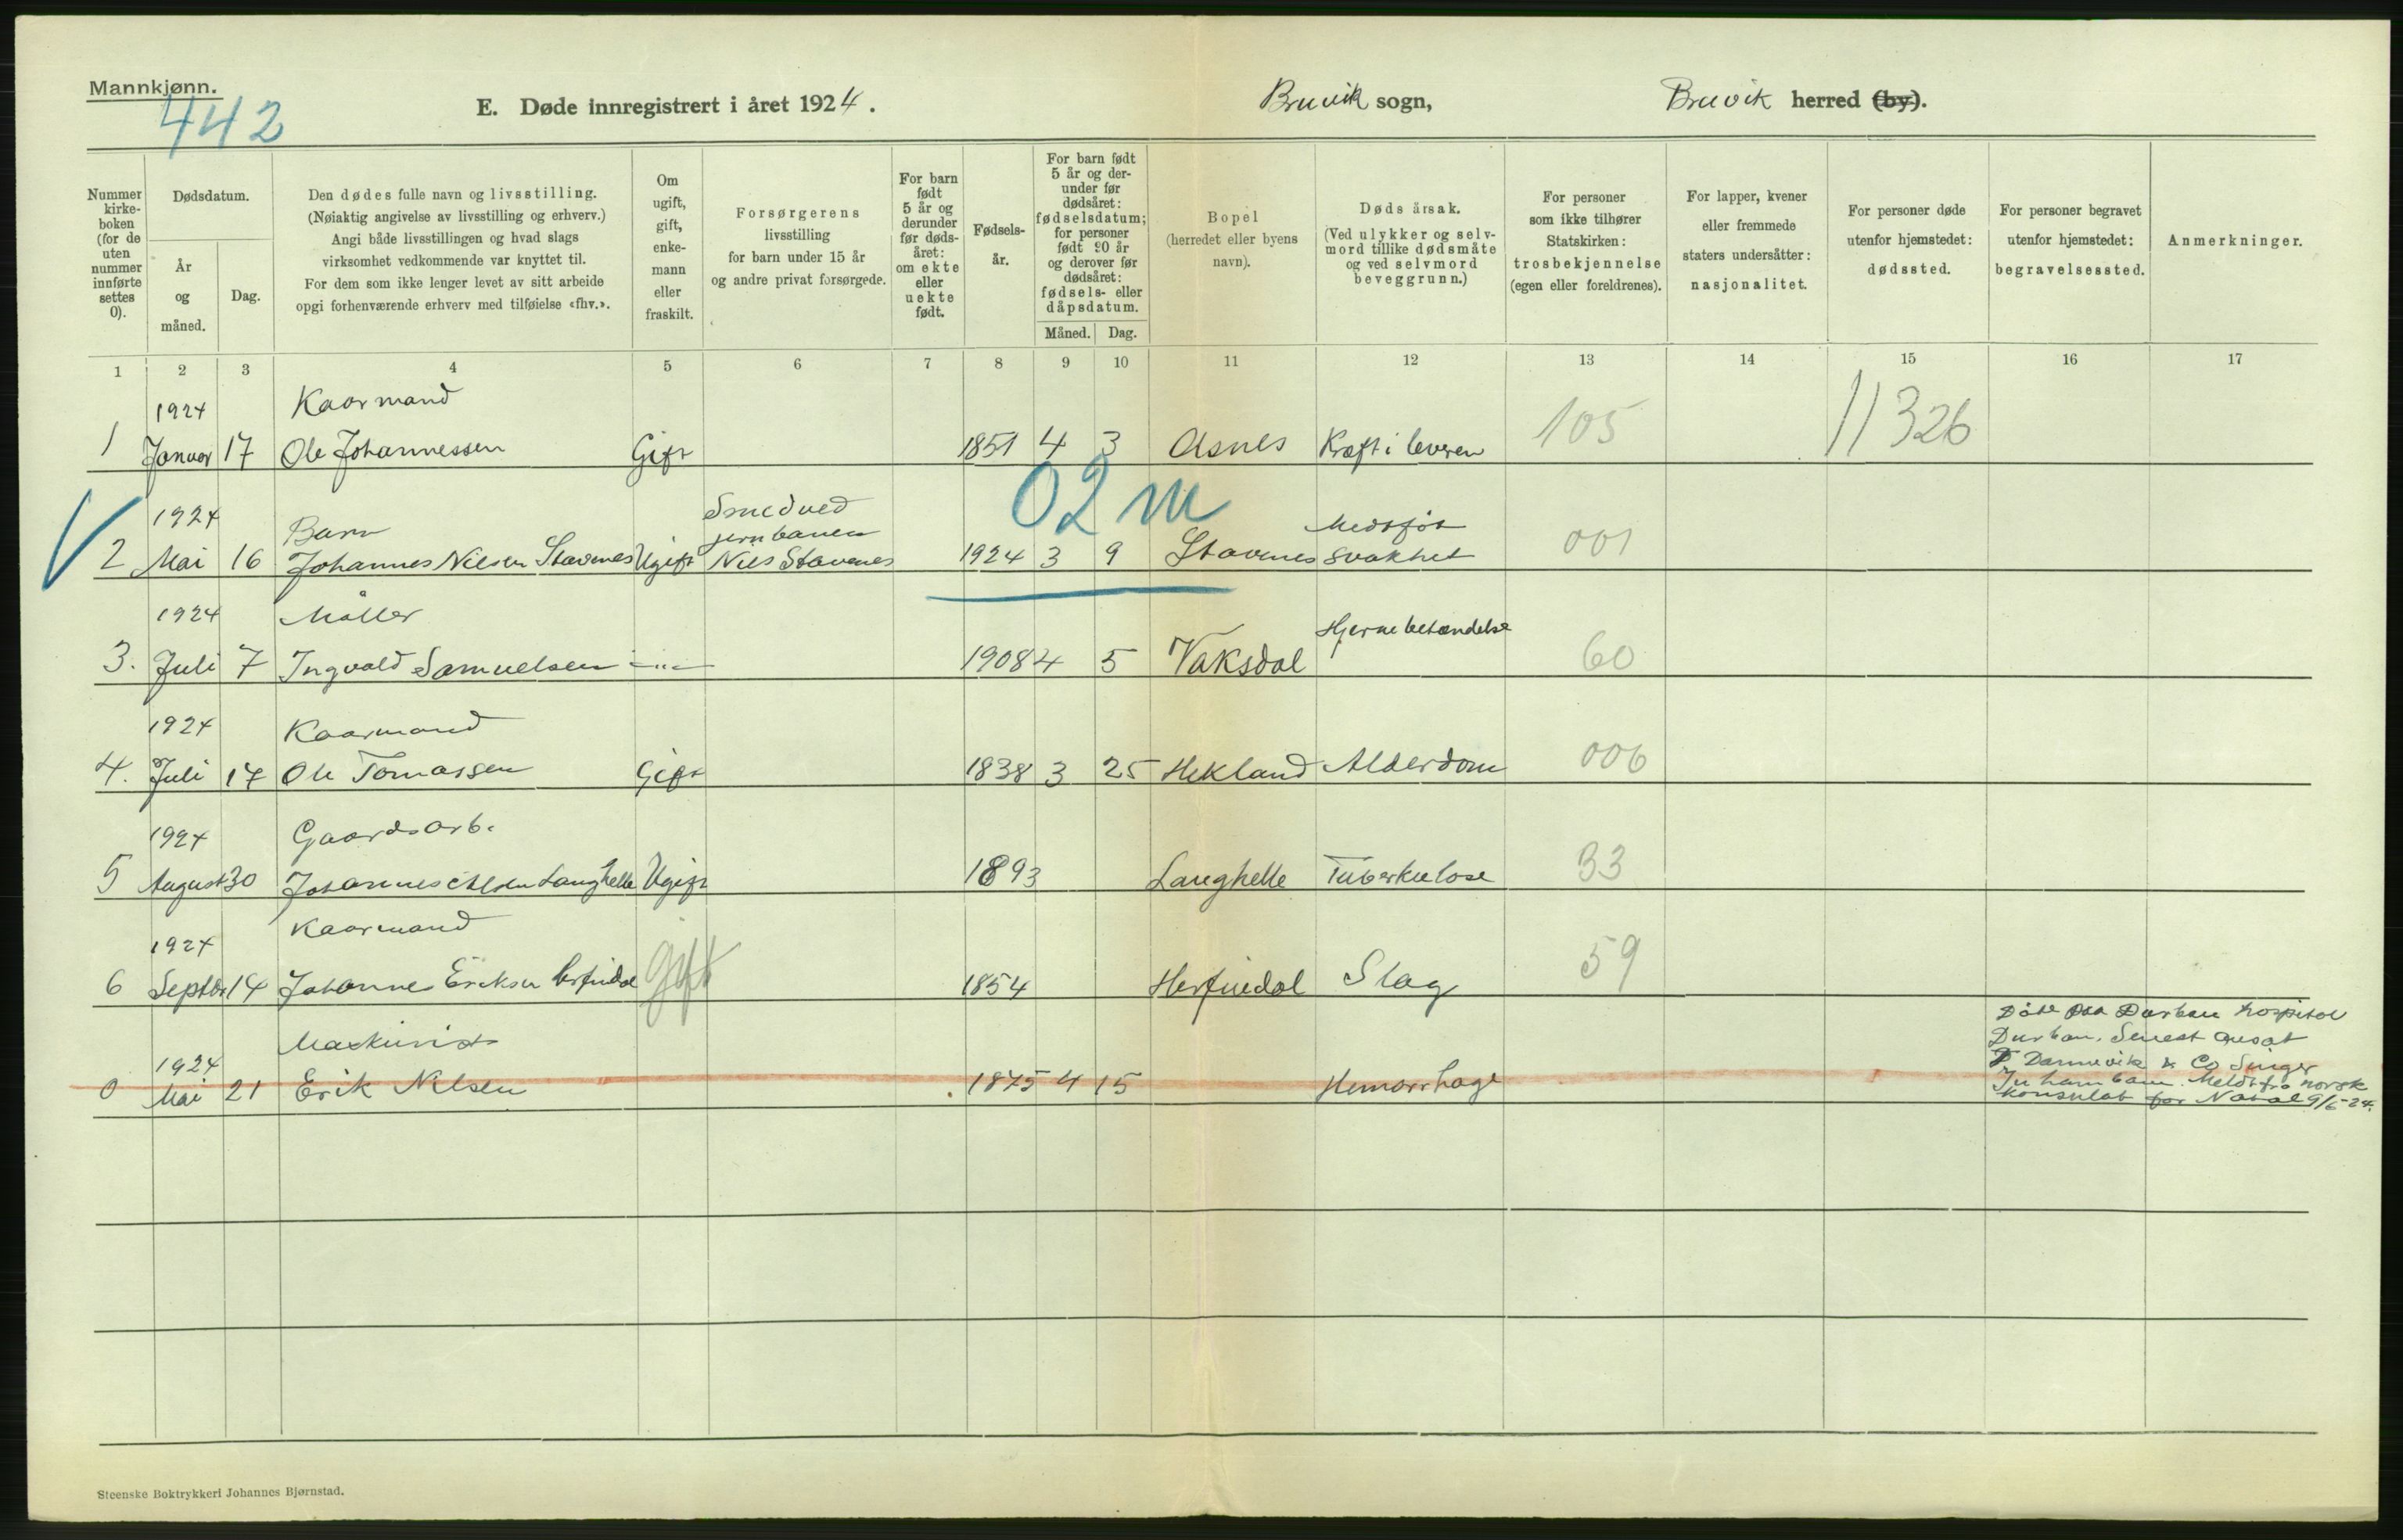 Mannkjønn.
442
E. Døde innregistrert i året 1924.
Bruvik sogn,
Bruvik herred (by).
Nummer
kirke-
boken
(for de
uten
nummer
innførte
settes
0).
Dødsdatum.
År
og
måned.
Dag.
Den dødes fulle navn og livsstilling.
(Nøiaktig angivelse av livsstilling og erhverv.)
Angi både livsstillingen og hvad slags
virksomhet vedkommende var knyttet til.
For dem som ikke lenger levet av sitt arbeide
opgi forhenværende erhverv med tilføielse «fhv.».
Om
ugift,
gift,
enke-
mann
eller
fraskilt.
Forsørgerens
livsstilling
for barn under 15 år
og andre privat forsørgede.
For barn
født
5 år og
derunder
før døds-
året:
om ekte
eller
uekte
født.
Fødsels-
år.
For barn født
5 år og der-
under før
dødsåret:
fødselsdatum;
for personer
født 90 år
og derover før
dødsåret:
fødsels- eller
dåpsdatum.
Måned. Dag.
Bopel
(herredet eller byens
navn).
Dødsårsak.
(Ved ulykker og selv-
mord tillike dødsmåte
og ved selvmord
beveggrunn.)
For personer
som ikke tilhører
Statskirken:
trosbekjennelse
(egen eller foreldrenes).
For lapper, kvener
eller fremmede
staters undersåtter:
nasjonalitet.
For personer døde
utenfor hjemstedet:
dødssted.
For personer begravet
utenfor hjemstedet:
begravelsessted.
Anmerkninger.
1 2 3 4 5 6 7 8 9 10 11 12 13 14 15 16 17
1924 Kaarmand
1 Januar 17 Ole Johannessen Gift 1851 4 3 Asnes Kræft i leveren 105 11326
02 m
1924 Barn Smed ved jernbanen Medfød
2 Mai 16 Johannes Nilsen Stavenes Ugift Nils Stavenes 1924 3 9 Stavenes svakhet 001
1924 Møller Hjernebetændelse
3. Juli 7 Ingvald Samuelsen —"— 1908 4 5 Vaksdal 60
1924 Kaarmand
4. Juli 17 Ole Tomassen Gift 1838 3 25 Hekland Alderdom 006
1924 Gaardsarb.
5 August 30 Johannes Langhelle Ugift 1893 Langhelle Tuberkulose 33
1924 Kaarmand
6 Septbr 14 Johannes Eriksen Herfindal gift 1854 Herfindal Slag 59
1924 Maskinist
0 Mai 21 Erik Nilsen 1875 4 15 Hemorrhage
Døde paa Durban hospital
Durban. Senest ansat
Dannevik & Co Singer
Inhambane. Meldt fra norsk
konsulat for Natal 9/6-24.
Steenske Boktrykkeri Johannes Bjørnstad.